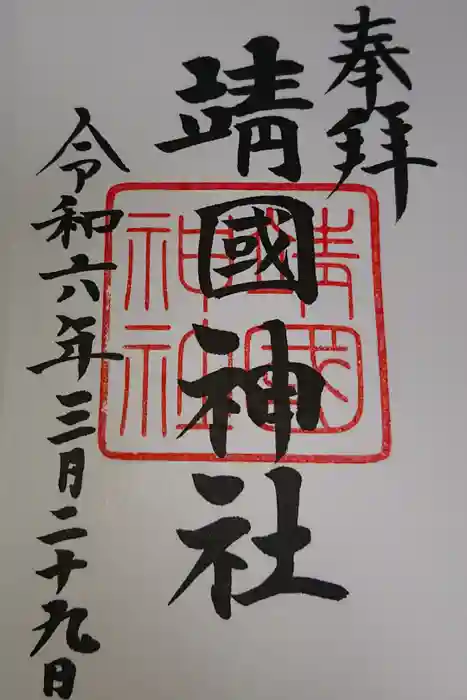 奉拝
靖國神社
靖國
神社
令和六年三月二十九日